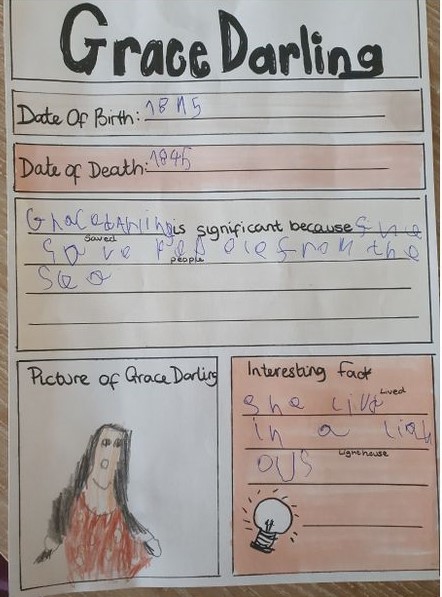 Grace Darling
Date Of Birth: 1815
Date of Death: 1845
Grace darling is significant because She
saved
Save PeP ole from the
people
Sea
Picture of Grace Darling
Interesting fact
Lived
She Live
in a Ligh
Lighthouse
ous